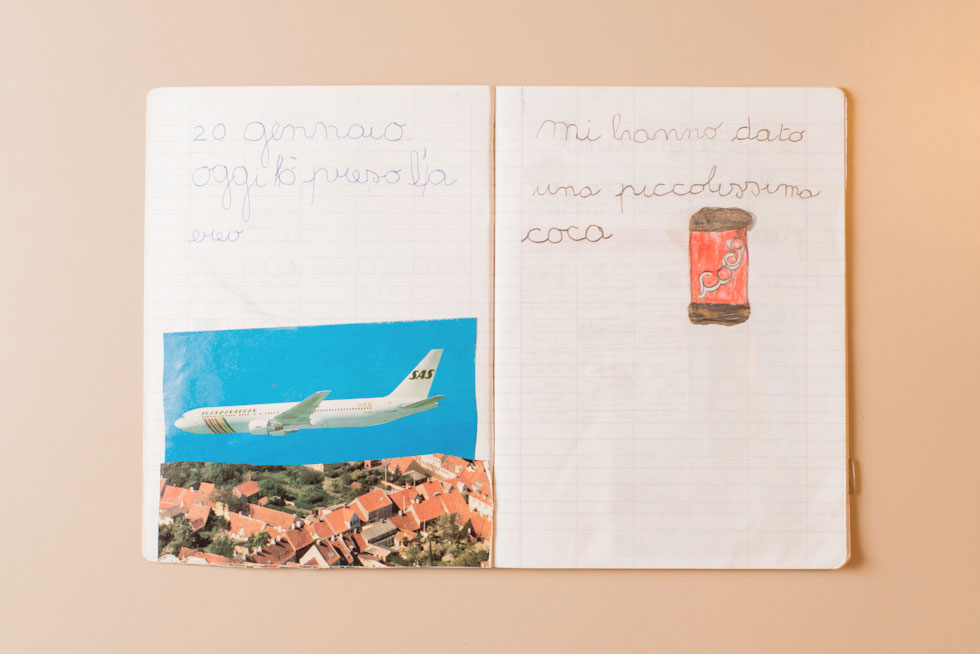 20 gennaio
oggi ò preso l'a
ereo
SCANDINAVIAN
SAS
mi hanno dato
una piccolissima
coca
coca